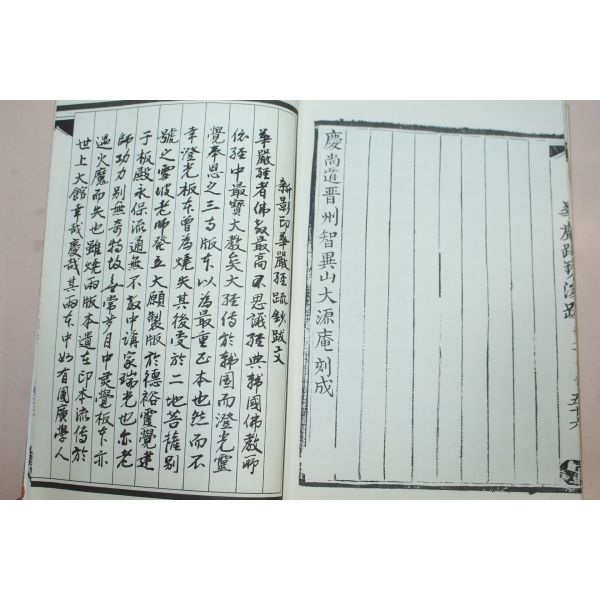 慶尚道晋州智異山大源庵刻成
新影印華嚴經疏鈔跋文
華嚴經者佛教最高不思議經典韓國佛教所
依經中最寶大教矣大經傳於韓国而澄光靈
覺奉恩之三寺版本以為最重正本也然而不
幸澄光板本曽為燒失其後受於二地菩薩别
號之雪坡老師發立大願製版於德裕靈覺建
于板殿永保流通無不教中講家瑞光也尔老
師功力别無奇特故
月中灵覺板本亦
遇火魔而失也雖燒兩版本遺在印本流傳於
世上大館幸哉慶哉其兩本中
有國廣學人